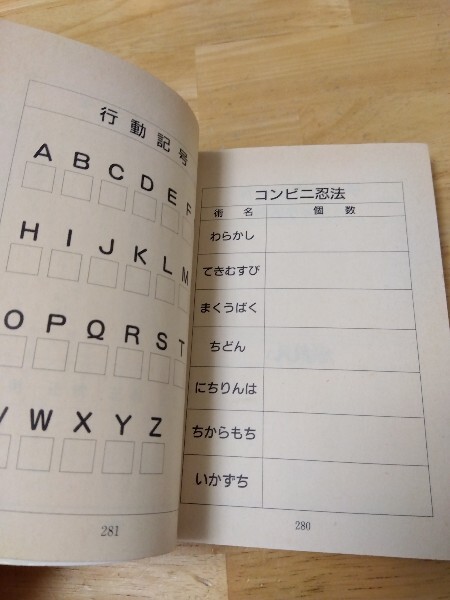 行動記号
A B C D E F
H I J K L M
O P Q R S T
V W X Y Z
281
コンビニ忍法
術名 個数
わらかし
てきむすび
まくうばく
ちどん
にちりんは
ちからもち
いかずち
280